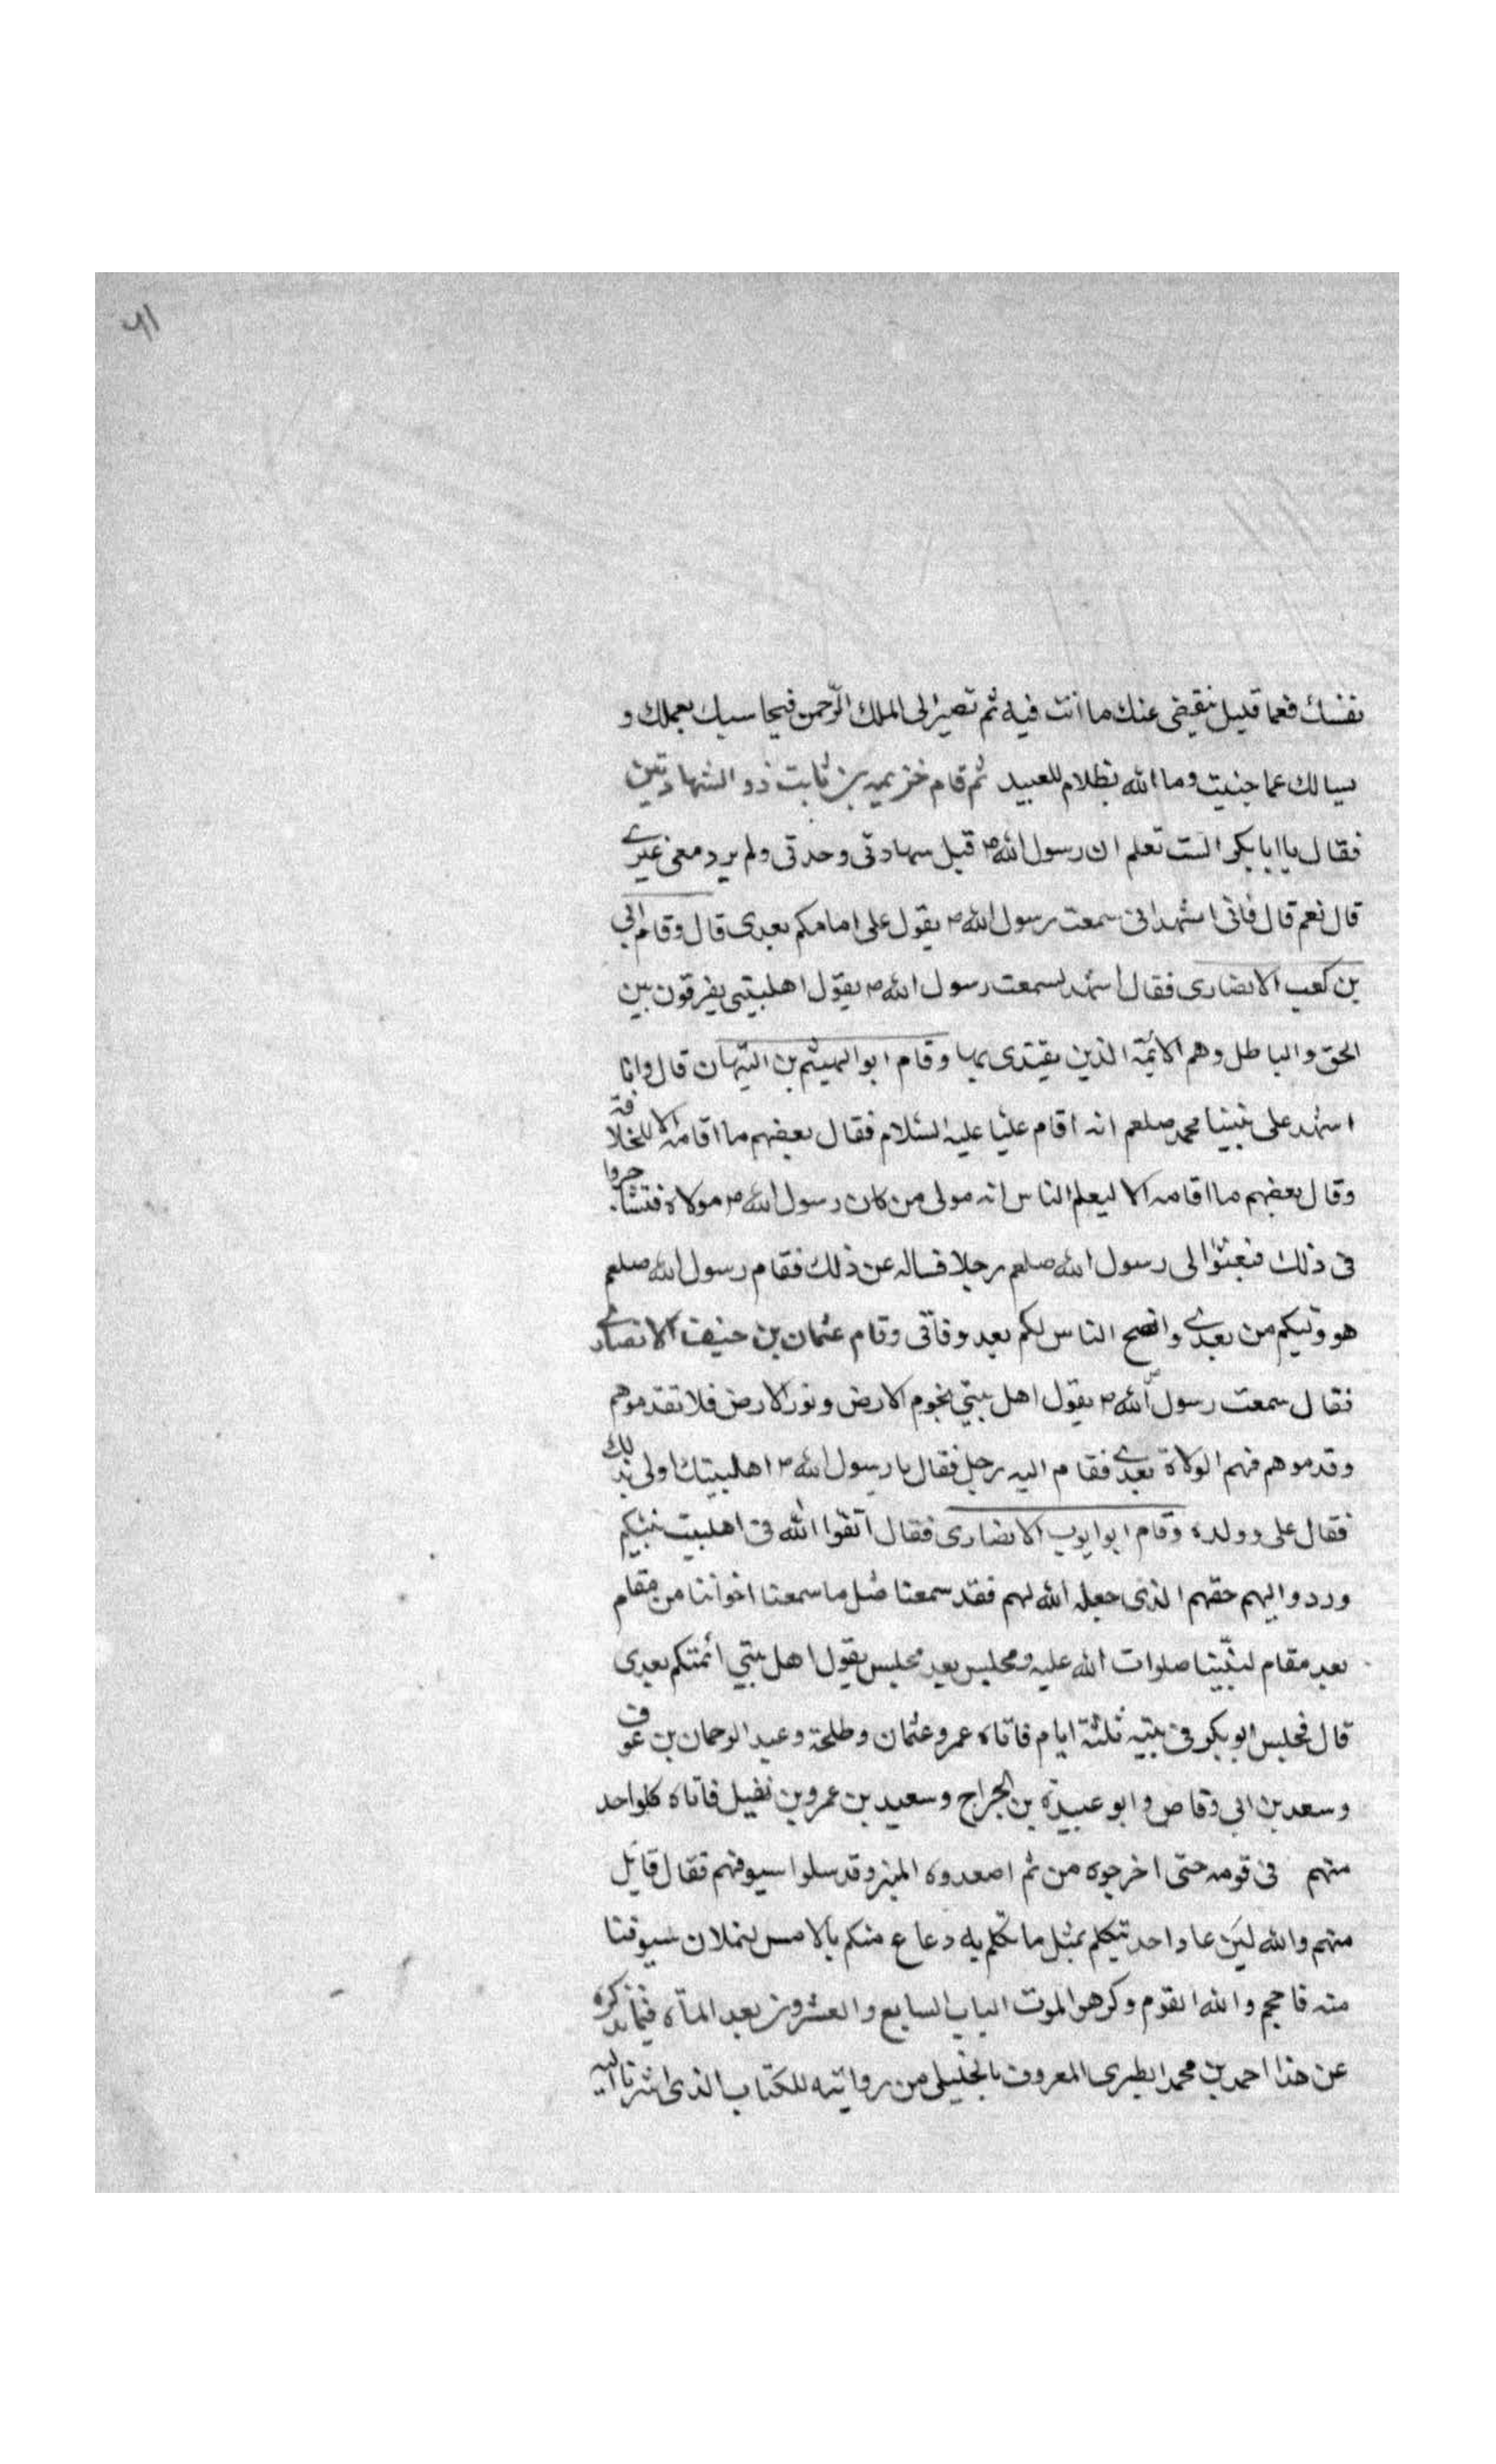 ٦١
نفسك فعما قليل ينقضى عنك ما انت فيه ثم تصير الى الملك الرّحمن فيحاسبك بعملك و
يسالك عما جنيت وما الله بظلام للعبيد ثم قام خزيمه بن ثابت ذو الشهادتين
فقال يا ابا بكر الست تعلم ان رسول الله ص قبل شهادتى وحدتى ولم يرد معى غيرے
قال نعم قال فانى اشهد انى سمعت رسول الله ص يقول على امامكم بعدى قال وقام ابي
بن كعب الانصارى فقال اشهد لسمعت رسول الله ص يقول اهلبيتى يفرقون بين
الحق والباطل وهم الائمّة الذين يقتدى بها وقام ابو الهيثم بن التيهان قال وانا
اشهد على نبينا محمد صلعم انه اقام عليّا عليه السّلام فقال بعضهم ما اقامه الا للخلافة
وقال بعضهم ما اقامه الا ليعلم الناس انه مولى من كان رسول الله ص مولاه فتشاجروا
فى ذلك فبعثوا الى رسول الله صلعم رجلا فساله عن ذلك فقام رسول الله صلعم
هو وليكم من بعدے وانصح الناس لكم بعد وفاتى وقام عثمان بن حنيف الانصارے
فقال سمعت رسول الله ص يقول اهل بيتي نجوم الارض ونور الارض فلا تقدموهم
وقدموهم فهم الولاة بعدے فقام اليه رجل فقال يا رسول الله ص اهلبيتك اولى بذلك
فقال على وولده وقام ابو ايوب الانصارى فقال اتقوا الله فى اهلبيت نبيكم
وردوا اليهم حقهم الذى جعله الله لهم فقد سمعنا مثل ما سمعنا اخواننا من مقام
بعد مقام لنبّينا صلوات الله عليه ومجلس بعد مجلس يقول اهل بيتي ائمتكم بعدى
قال فجلس ابو بكر فى بيته ثلثة ايام فاتاه عمر وعثمان وطلحة وعبد الرحمان بن عوف
وسعد بن ابى وقاص وابو عبيدة بن الجراح وسعيد بن عمرو بن نفيل فاتاه كلواحد
منهم فى قومه حتى اخرجوه من ثم اصعدوه المنبر وقد سلوا سيوفهم فقال قائل
منهم والله لئن عاد احد يتكلم بمثل ما تكلم به دعاع منكم بالامس لنملان سيوفنا
منه فاحجم والله القوم وكرهوا الموت الباب السابع والعشرون بعد المأة فيما نذكره
عن هذا احمد بن محمد الطبرى المعروف بالخليلى من روايته للكتاب الذى اشرنا اليه